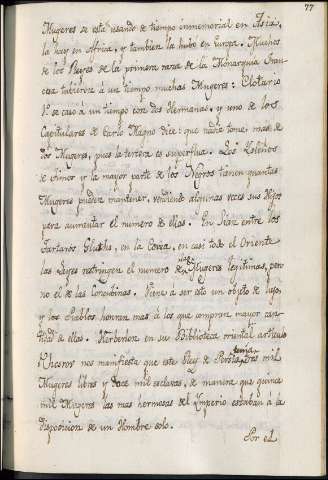 77
Mugeres se está usando de tiempo inmemorial en Asia,
la hay en Africa, y tambien la hubo en Europa. Muchos
de los Reyes de la primera raza de la Monarquia Fran
cesa tubieron á un tiempo muchas Mugeres: Clotario
1º se caso á un tiempo con dos Hermanas, y uno de los
Capitulares de Carlo Magno dice: que nadie tome mas de
dos Mugeres, pues la tercera es superflua. Los Isleños
de Amor y la mayor parte de los Negros tienen quantas
Mugeres pueden mantener, vendiendo algunas veces sus Hijos
para aumentar el numero de ellas. En Sian entre los
Tartaros, en la Corea, en casi todo el Oriente
las Leyes restringen el numero de las Mugeres legitimas, pero
no el de las Concubinas. Viene á ser esto un objeto de lujo,
y los Pueblos honran mas á los que compran mayor can
tidad de ellas. Herbelon en su Biblioteca oriental articulo
Khesroes nos manifiesta que este Rey de Persia tenia tres mil
Mugeres libres y doce mil esclavas, de manera que quince
mil Mugeres las mas hermosas del Imperio estaban á la
disposicion de un Hombre solo.
Por el